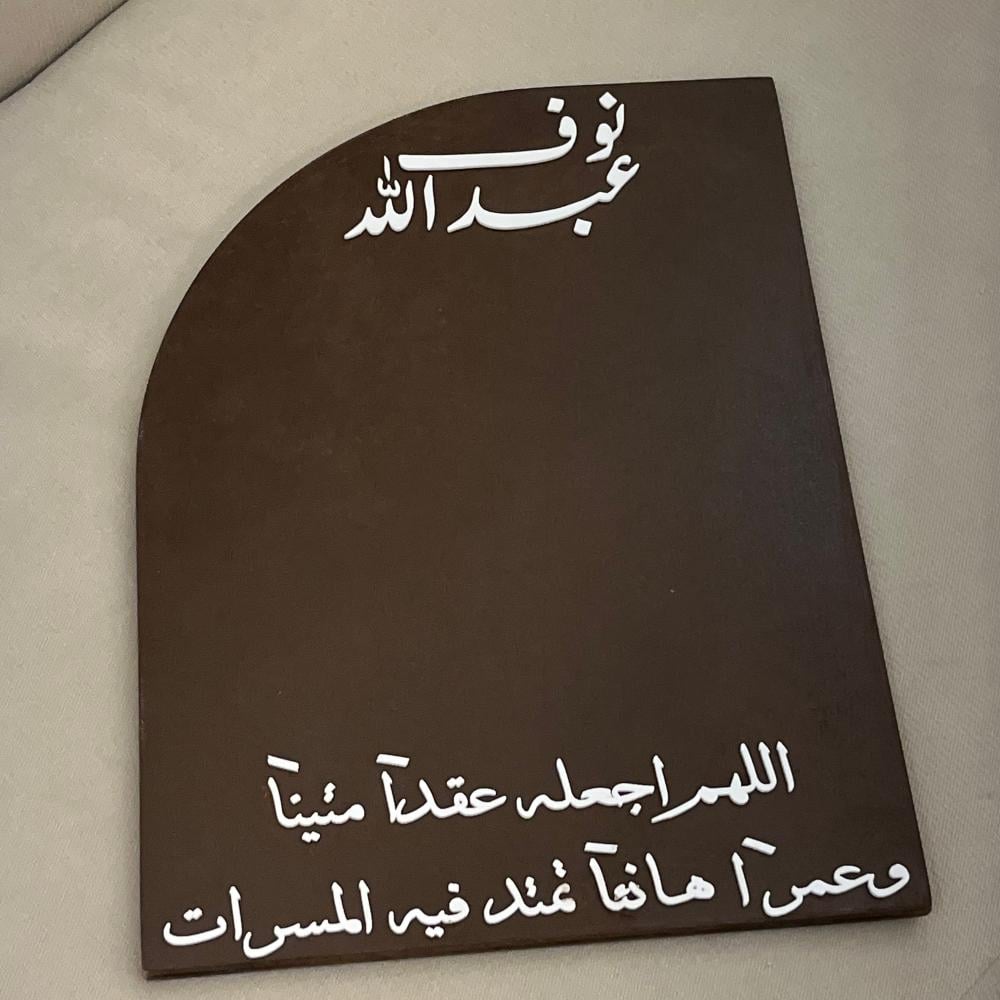 نوف
عبد الله
اللهم اجعله عقداً متيناً
وعمراً هانئاً تمتد فيه المسرات